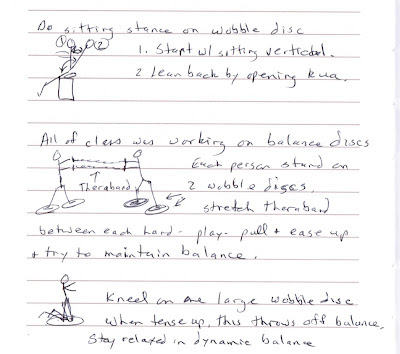 Do sitting stance on wobble disc
① ②
1. Start w/ sitting vertical.
2 Lean back by opening kua.
All of class was working on balance discs
Each person stand on
Theraband
2 wobble discs.
stretch theraband
between each hand - play - pull + ease up
+ try to maintain balance.
Kneel on one large wobble disc
When tense up, this throws off balance.
Stay relaxed in dynamic balance